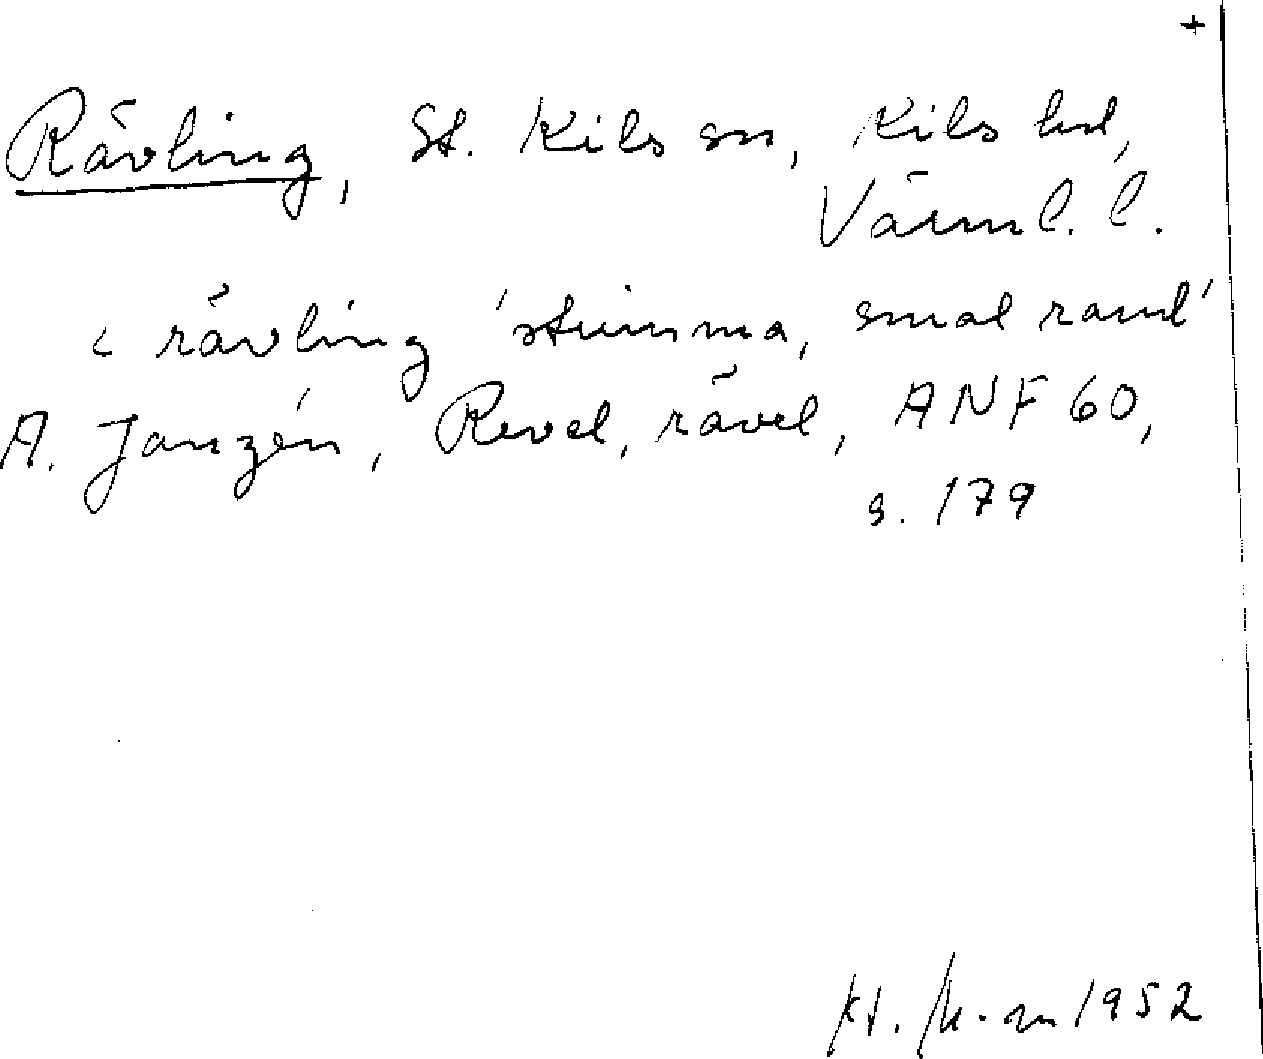 +
Rävling, St. Kils sn, Kils hd,
Värml. l.
< rävling 'strimma, smal rand'
A. Janzén, Revel, rävel, ANF 60,
s. 179
1952